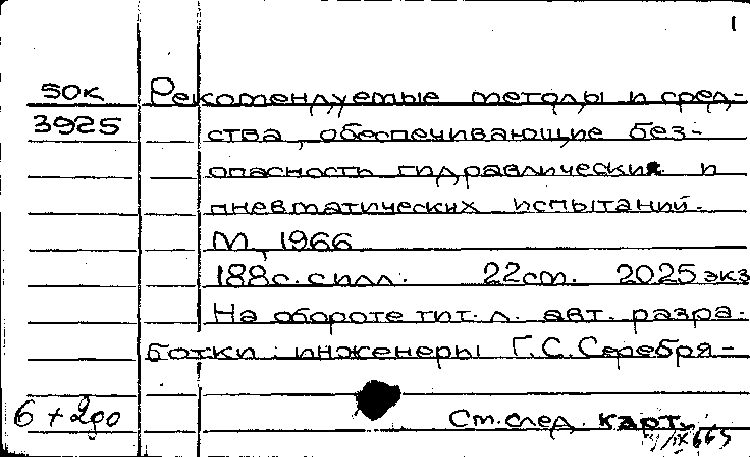 1
50к Рекомендуемые методы и сред-
3925 ства, обеспечивающие без-
опасность гидравлических и
пневматических испытаний.
М, 1966
188с. силл. 22см. 2025 экз
На обороте тит. л. авт. разра-
ботки: инженеры Г.С. Серебря-
6+2до Ст. след. карт.